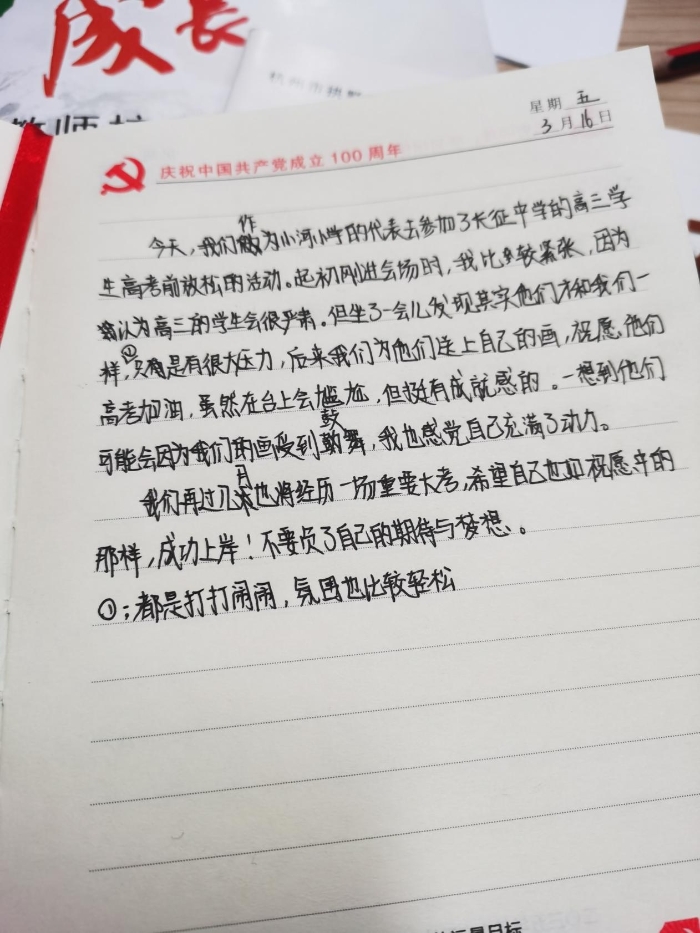 成长
教师
星期 五
3月16日
庆祝中国共产党成立100周年
作
今天,我们为小河小学的代表去参加了长征中学的高三学
生高考前放松的活动。起初刚进会场时,我比较紧张,因为
认为高三的学生会很严肃。但坐了一会儿发现其实他们才和我们一
样,①只是有很大压力,后来我们为他们送上自己的画,祝愿他们
高考加油,虽然在台上会尴尬,但挺有成就感的。一想到他们
鼓
可能会因为我们的画受到舞,我也感觉自己充满了动力。
月
我们再过几也将经历一场重要大考,希望自己也如祝愿中的
那样,成功上岸!不要负了自己的期待与梦想。
①:都是打打闹闹,氛围也比较轻松
目标